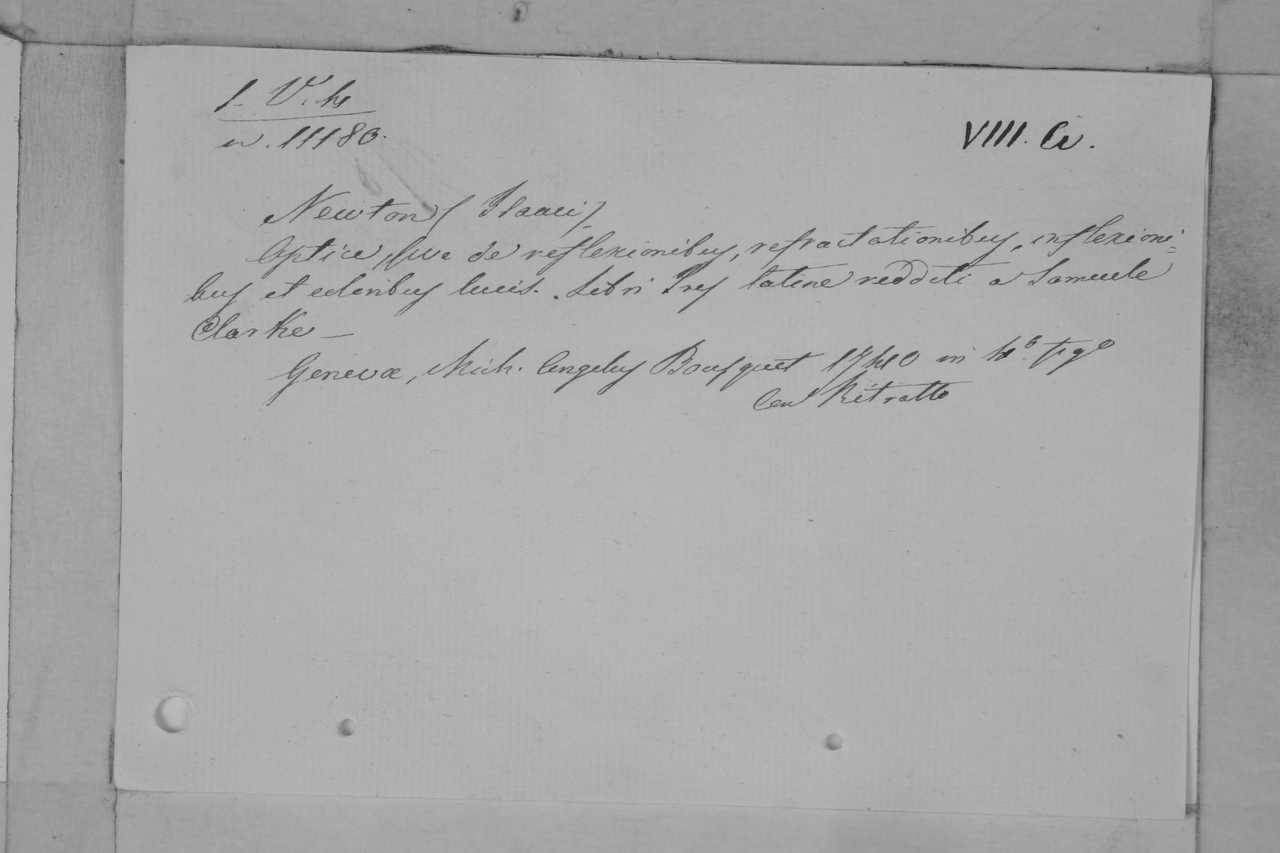 1. V. 4
n. 11180.
VIII. A.
Newton (Isaaci)
Optice, sive de reflexionibus, refractationibus, inflexioni=
bus et coloribus lucis. Libri Tres latine redditi a Samuele
Clarke _
Genevæ, Mich. Angelus Bousquet 1740 in 4º. fig.º
Con Ritratto